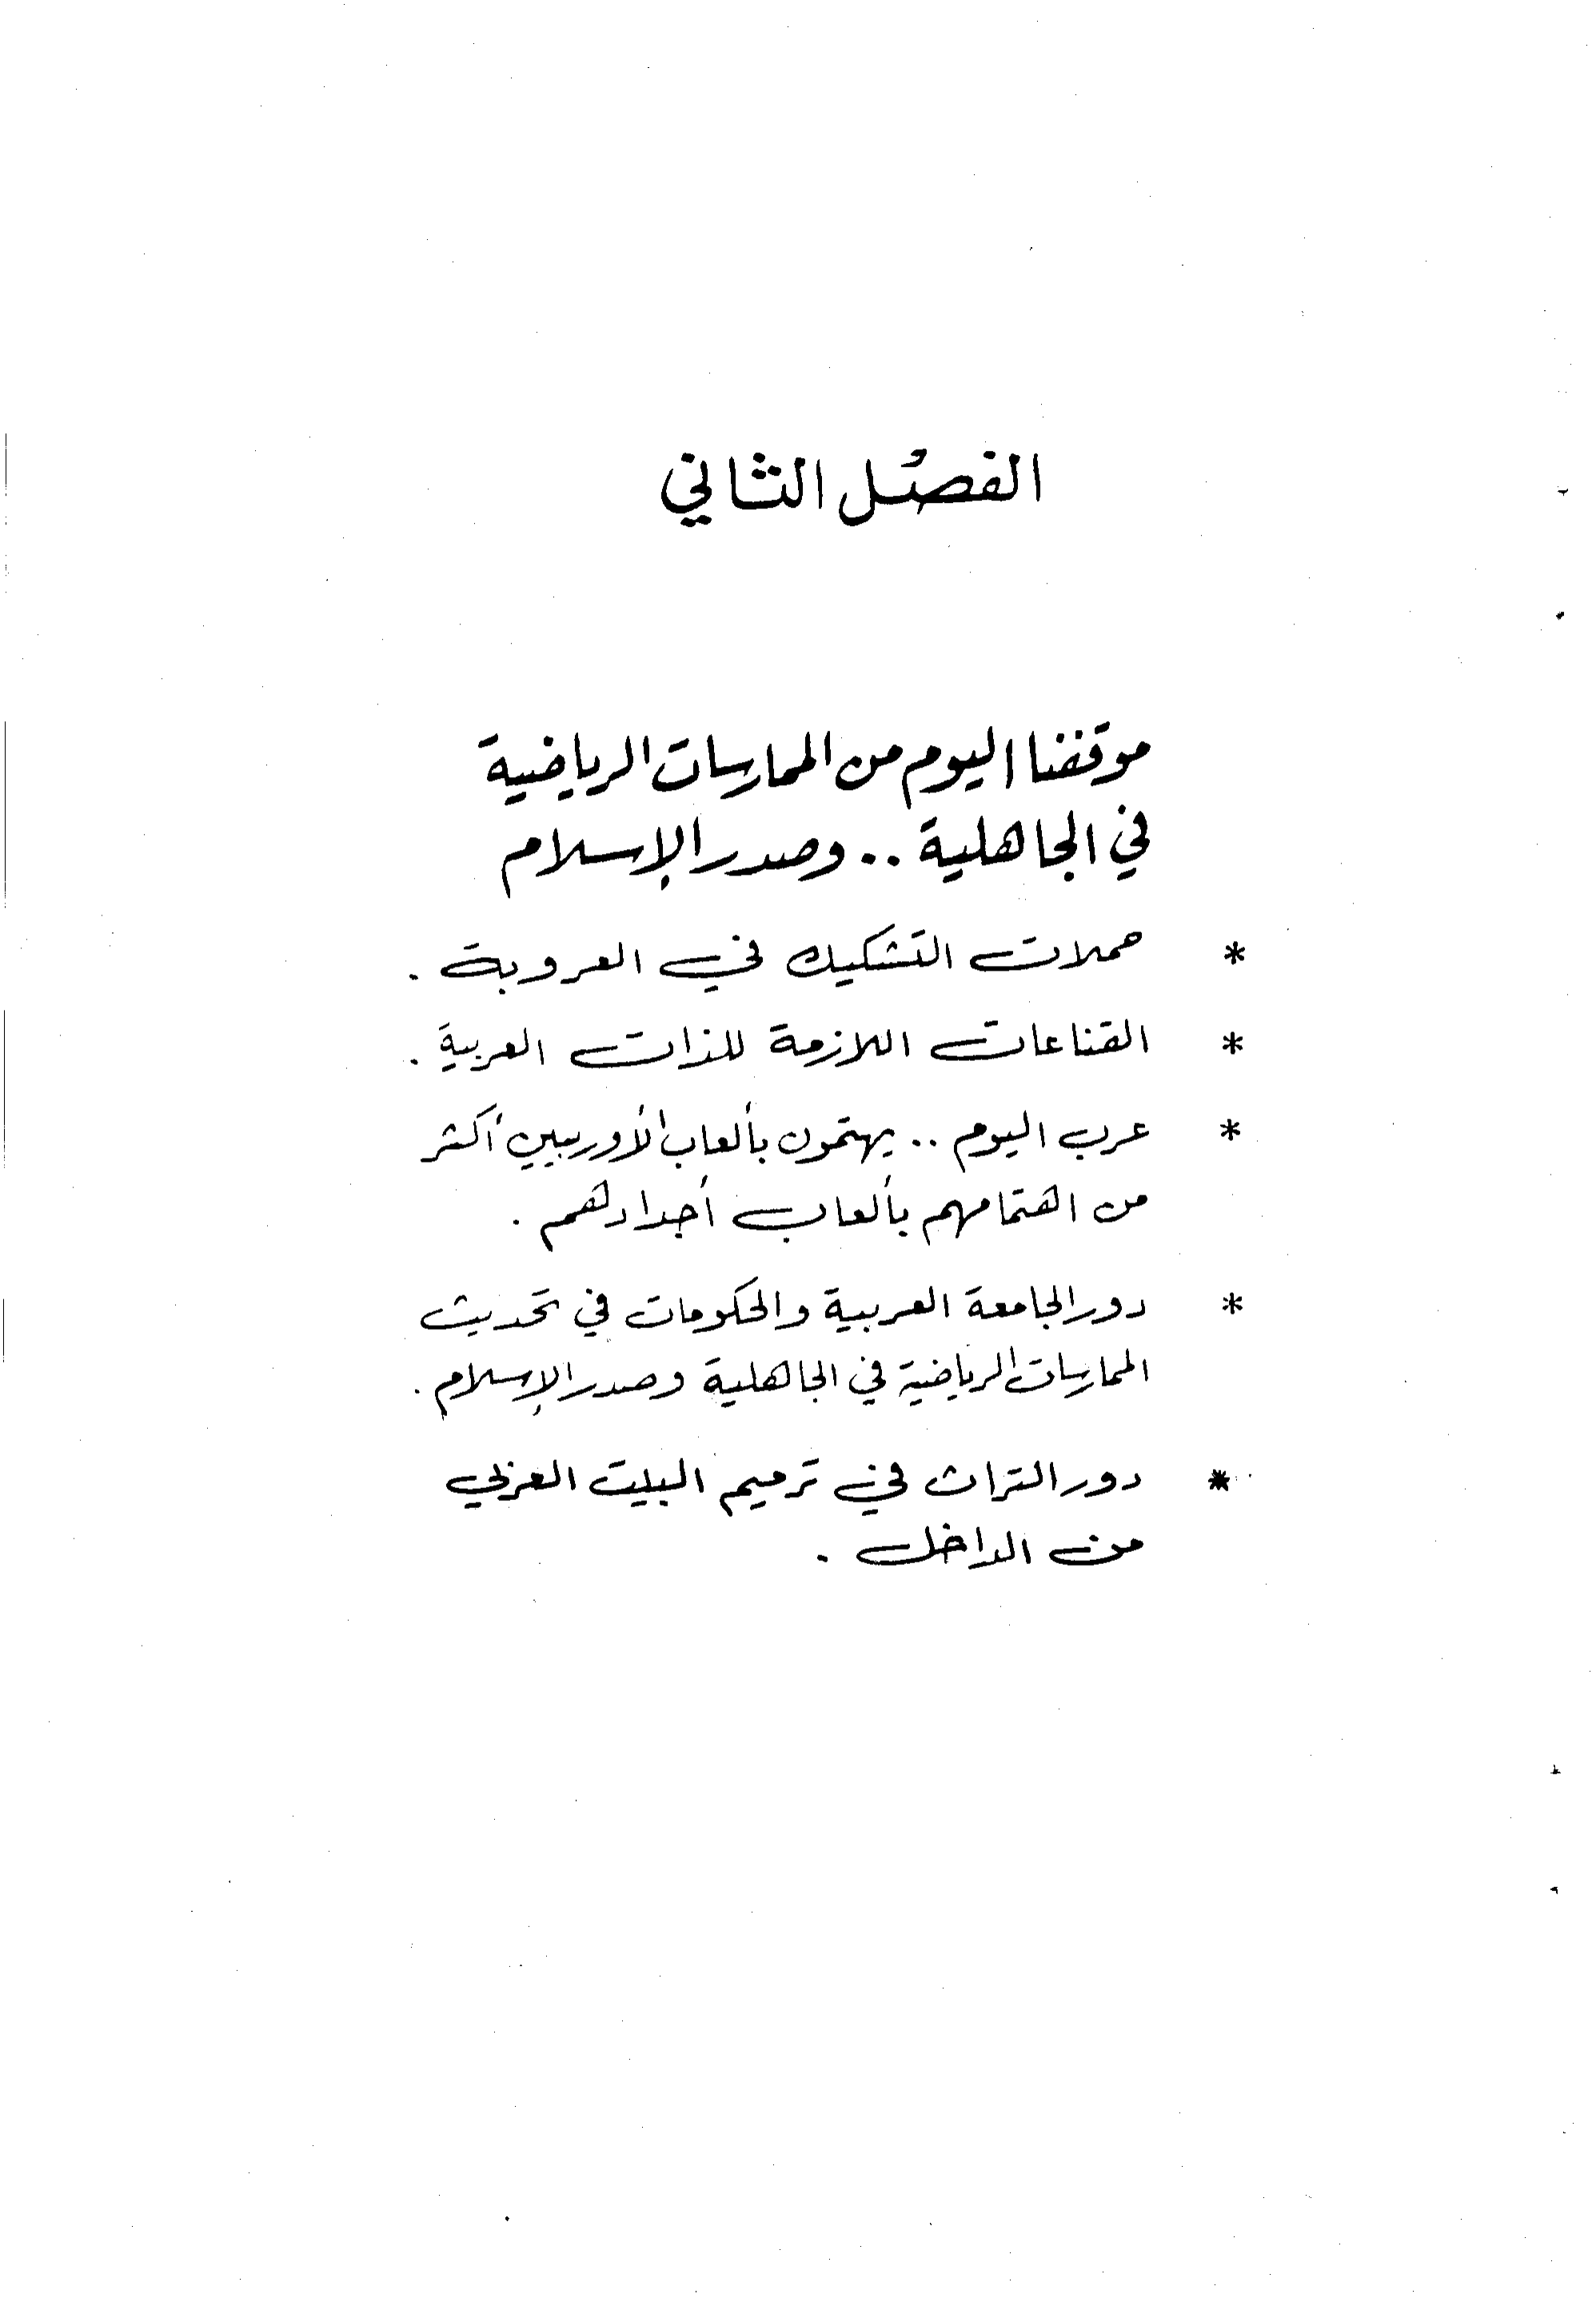 الفصل الثاني
موقفنا اليوم من الممارسات الرياضية
في الجاهلية .. وصدر الإسلام
* حملات التشكيك في العروبة .
* القناعات اللازمة للذات العربية .
* عرب اليوم .. يهتمون بألعاب الأوربيين أكثر
من اهتمامهم بألعاب أجدادهم .
* دور الجامعة العربية والحكومات في تحديث
الممارسات الرياضية في الجاهلية وصدر الإسلام .
* دور التراث في ترميم البيت العربي
من الداخل .